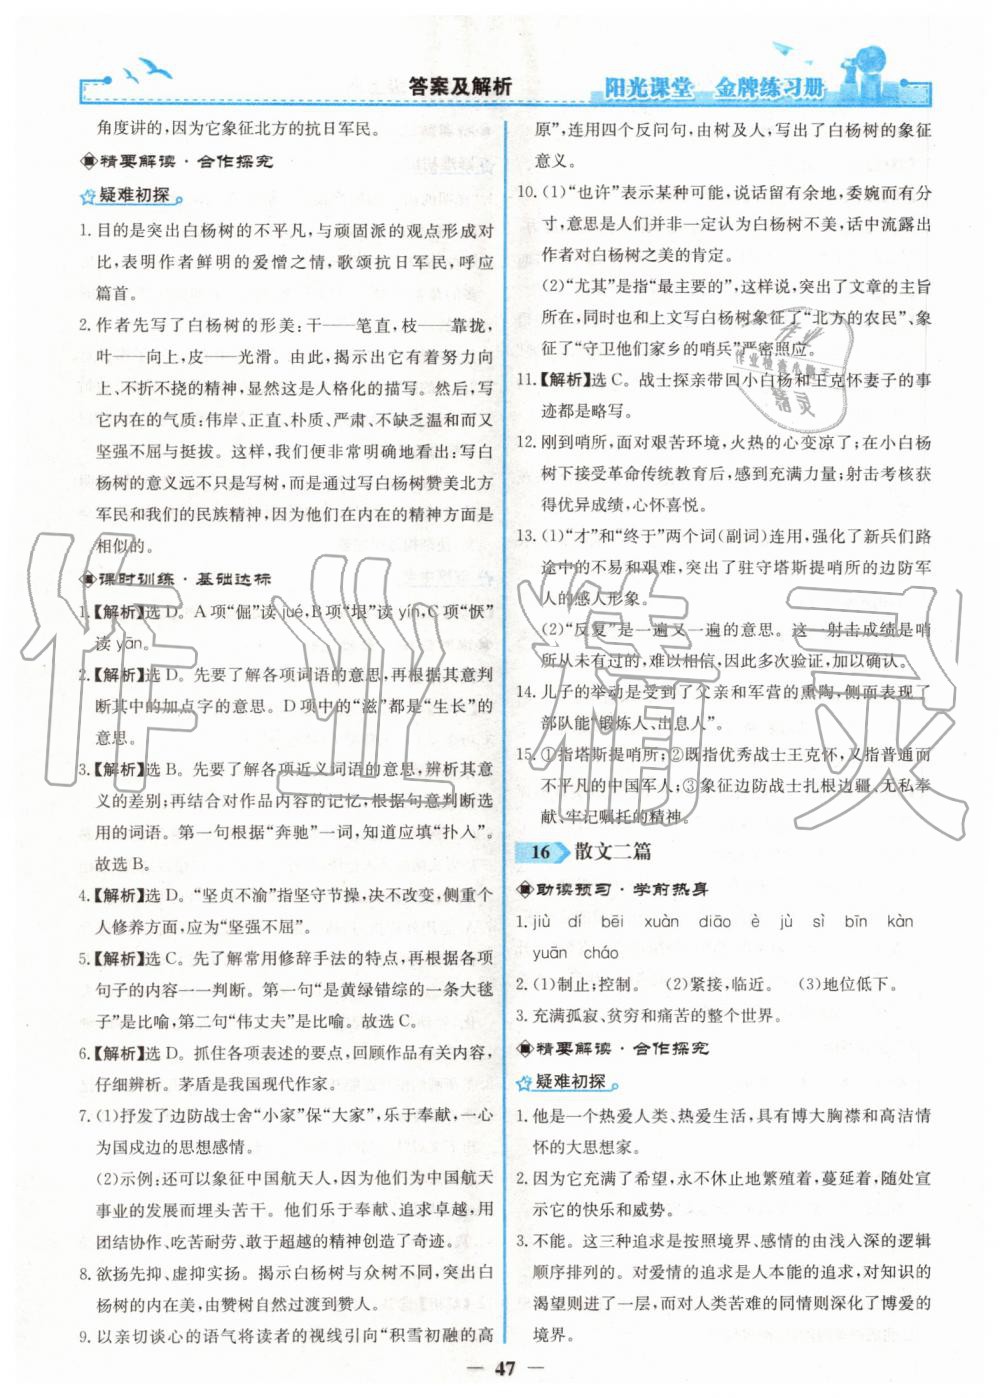 答案及解析
阳光课堂 金牌练习册
角度讲的,因为它象征北方的抗日军民。
精要解读·合作探究
疑难初探
1. 目的是突出白杨树的不平凡,与顽固派的观点形成对
比,表明作者鲜明的爱憎之情,歌颂抗日军民,呼应
篇首。
2. 作者先写了白杨树的形美:干——笔直,枝——靠拢,
叶——向上,皮——光滑。由此,揭示出它有着努力向
上、不折不挠的精神,显然这是人格化的描写。然后,写
它内在的气质:伟岸、正直、朴质、严肃、不缺乏温和而又
坚强不屈与挺拔。这样,我们便非常明确地看出:写白
杨树的意义远不只是写树,而是通过写白杨树赞美北方
军民和我们的民族精神,因为他们在内在的精神方面是
相似的。
课时训练·基础达标
1.【解析】选 D。A 项“倔”读 jué,B 项“垠”读 yín,C 项“恹”
读 yān。
2.【解析】选 D。先要了解各项词语的意思,再根据其意判
断其中的加点字的意思。D 项中的“滋”都是“生长”的
意思。
3.【解析】选 B。先要了解各项近义词语的意思,辨析其意
义的差别;再结合对作品内容的记忆,根据句意判断选
用的词语。第一句根据“奔驰”一词,知道应填“扑入”。
故选 B。
4.【解析】选 D。“坚贞不渝”指坚守节操,决不改变,侧重个
人修养方面,应为“坚强不屈”。
5.【解析】选 C。先了解常用修辞手法的特点,再根据各项
句子的内容一一判断。第一句“是黄绿错综的一条大毯
子”是比喻,第二句“伟丈夫”是比喻。故选 C。
6.【解析】选 D。抓住各项表述的要点,回顾作品有关内容,
仔细辨析。茅盾是我国现代作家。
7. (1)抒发了边防战士舍“小家”保“大家”,乐于奉献,一心
为国戍边的思想感情。
(2)示例:还可以象征中国航天人,因为他们为中国航天
事业的发展而埋头苦干。他们乐于奉献、追求卓越,用
团结协作、吃苦耐劳、敢于超越的精神创造了奇迹。
8. 欲扬先抑、虚抑实扬。揭示白杨树与众树不同,突出白
杨树的内在美,由赞树自然过渡到赞人。
9. 以亲切谈心的语气将读者的视线引向“积雪初融的高
原”,连用四个反问句,由树及人,写出了白杨树的象征
意义。
10. (1)“也许”表示某种可能,说话留有余地,委婉而有分
寸,意思是人们并非一定认为白杨树不美,话中流露出
作者对白杨树之美的肯定。
(2)“尤其”是指“最主要的”,这里,突出了文章的主旨
所在,同时也和上文写白杨树象征了“北方的农民”、象
征了“守卫他们家乡的哨兵”严密照应。
11.【解析】选 C。战士探亲带回小白杨和王克怀妻子的事
迹都是略写。
12. 刚到哨所,面对艰苦环境,火热的心变凉了;在小白杨
树下接受革命传统教育后,感到充满力量;射击考核获
得优异成绩,心怀喜悦。
13. (1)“才”和“终于”两个词(副词)连用,强化了新兵们路
途中的不易和艰难,突出了驻守塔斯提哨所的边防军
人的感人形象。
(2)“反复”是一遍又一遍的意思。这一射击成绩是哨
所从未有过的,难以相信,因此多次验证,加以确认。
14. 儿子的举动是受到了父亲和军营的熏陶,侧面表现了
部队能“锻炼人、出息人”。
15. ①指塔斯提哨所;②既指优秀战士王克怀,又指普通而
不平凡的中国军人;③象征边防战士扎根边疆、无私奉
献、牢记嘱托的精神。
16 散文二篇
助读预习·学前热身
1. jiù dí bēi xuàn diāo è jù sì bīn kàn
yuān cháo
2. (1)制止;控制。 (2)紧接,临近。 (3)地位低下。
3. 充满孤寂、贫穷和痛苦的整个世界。
精要解读·合作探究
疑难初探
1. 他是一个热爱人类、热爱生活,具有博大胸襟和高洁情
怀的大思想家。
2. 因为它充满了希望,永不休止地繁殖着,蔓延着,而又宣
示它的快乐和威势。
3. 不能。这三种追求是按照境界、感情的由浅入深的逻辑
顺序排列的。对爱情的追求是人本能的追求,对知识的
渴望则进了一层,而对人类苦难的同情则深化了博爱的
境界。
作业精灵
作业
作业检查小助手
精灵
47